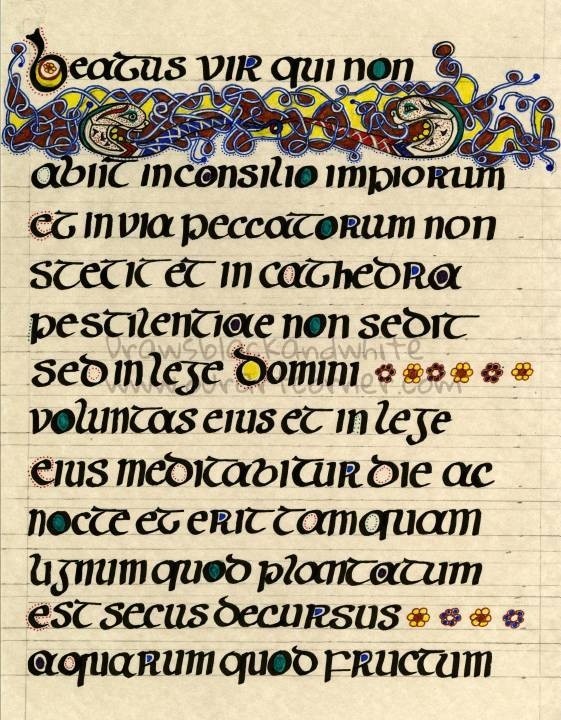 beatus vir qui non
abiit in consilio impiorum
et in via peccatorum non
stetit et in cathedra
pestilentiae non sedit
Drawsblackandwhite
sed in lege domini
voluntas eius et in lege
eius meditabitur die ac
nocte et erit tamquam
lignum quod plantatum
est secus decursus
aquarum quod fructum